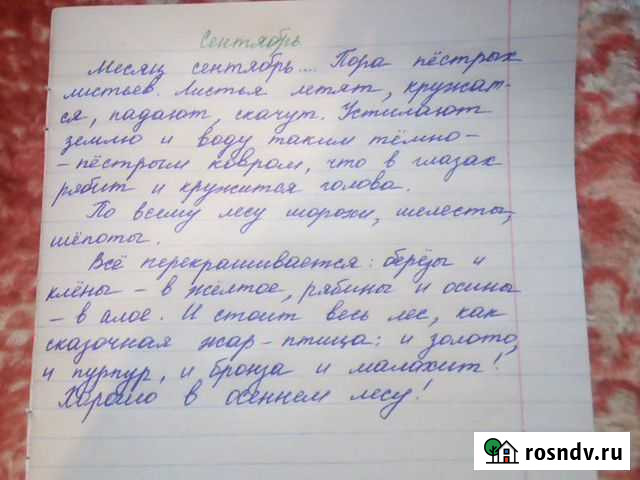 Сентябрь
Месяц сентябрь.... Пора пёстрых
листьев. Листья летят, кружат-
ся, падают, скачут. Устилают
землю и воду таким тёмно-
-пёстрым ковром, что в глазах
рябит и кружится голова.
По всему лесу шорохи, шелесты,
шёпоты.
Всё перекрашивается: берёзы и
клёны - в жёлтое, рябины и осины
- в алое. И стоит весь лес, как
сказочная жар-птица: и золото,
и пурпур, и бронза и малахит!
Хорошо в осеннем лесу!
rosndv.ru